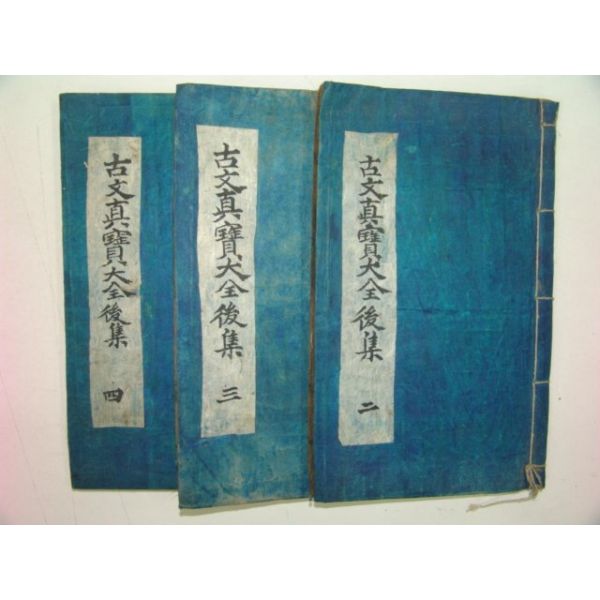 古文真寶大全後集 二
古文真寶大全後集 三
古文真寶大全後集 四